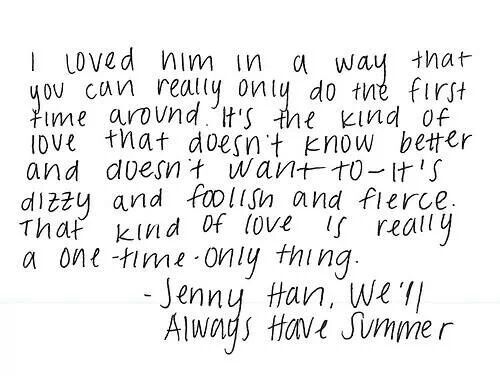 I loved him in a way that
you can really only do the first
time around. It's the kind of
love that doesn't know better
and doesn't want to - it's
dizzy and foolish and fierce.
That kind of love is really
a one-time-only thing.
- Jenny Han, We'll
Always Have Summer